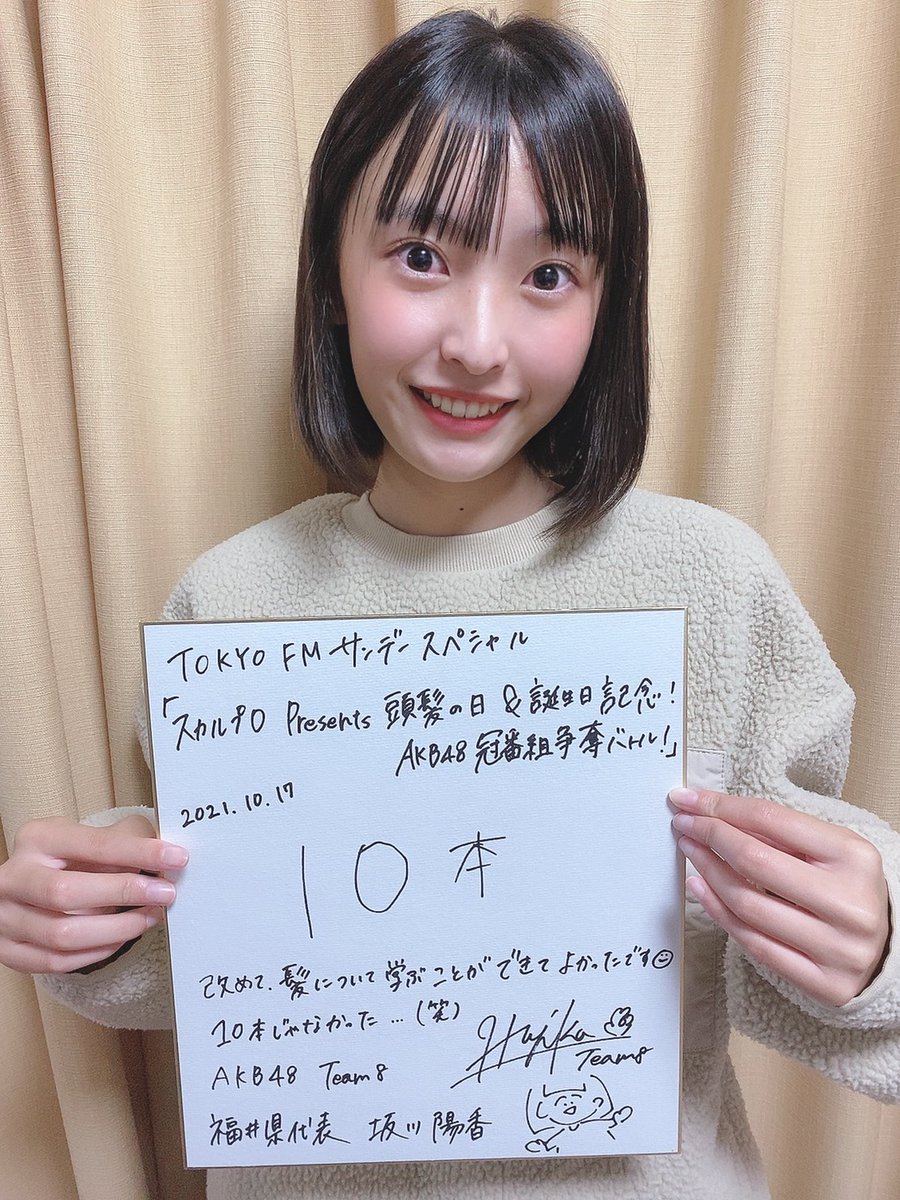 TOKYO FM サンデースペシャル
「スカルプD Presents 頭髪の日 & 誕生日記念!
AKB48 冠番組争奪バトル!」
2021.10.17
10本
改めて、髪について学ぶことができてよかったです
10本じゃなかった…(笑)
Hajika
Team8
AKB48 Team8
福井県代表 坂川陽香